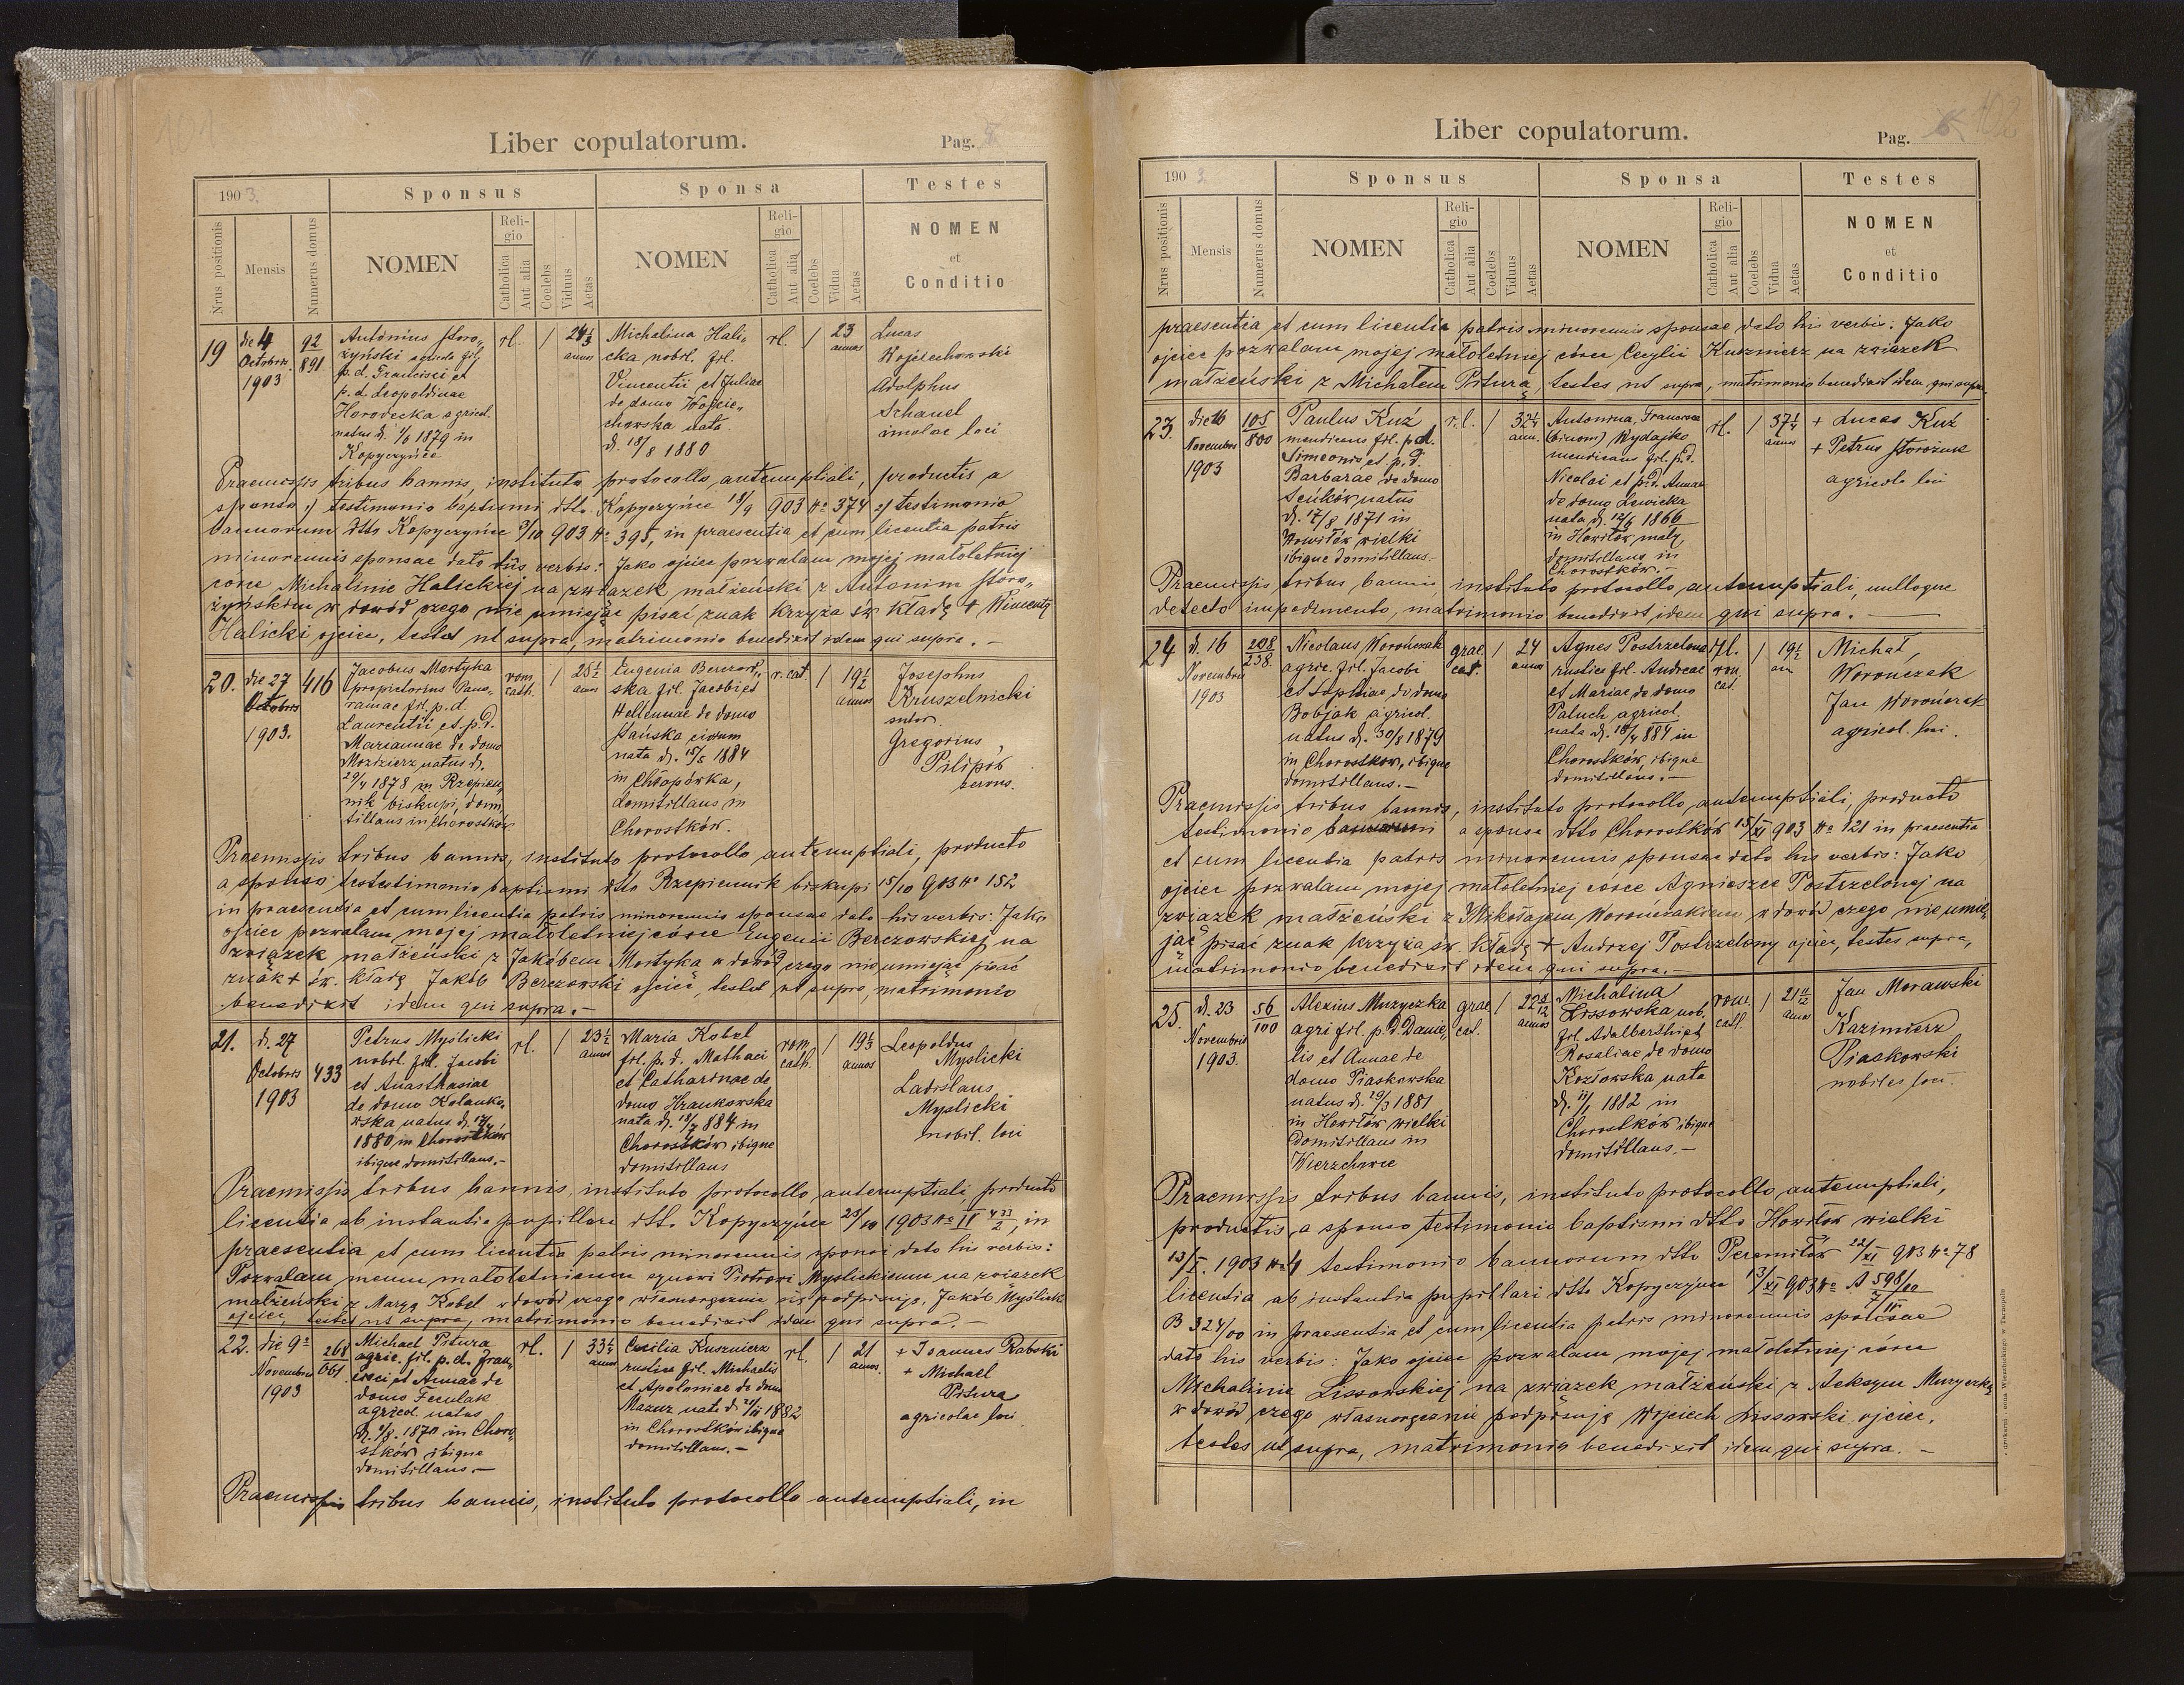 101
Liber copulatorum.
Pag.
1903
Sponsus
Sponsa
Testes
Nrus positionis
Mensis
Numerus domus
NOMEN
Religio
Catholica
Aut alia
Coelebs
Viduus
Aetas
NOMEN
Religio
Catholica
Aut alia
Coelebs
Vidua
Aetas
NOMEN
et
Conditio
19
die 4
Octobris
1903
92
891
Antonius Storo„
żyński
p.d. Francisci et
p.d. Leopoldinae
Horodecka agricol.
natus d. 1/6 1879 in
Kopyczyńce
rl.
/
24 1/3
annos
Michalina Hali„
cka nobil. fil.
Vincentii et Juliae
de domo Wojcie„
chowska nata
d. 18/8 1880
rl.
/
23
annos
Lucas
Wojciechowski
Adolphus
Schauel
incolae loci
Praemissis tribus bannis, instituto protocollo antenuptiali, productis a
sponso 1) testimonio baptismi dtto Kopyczyńce 18/9 903 No 374 2) testimonio
bannorum dtto Kopyczyńce 3/10 903 No 395, in praesentia et cum licentia patris
minorennis sponsae dato his verbis: Jako ojciec pozwalam mojej małoletniej
córce Michalinie Halickiej na związek małżeński z Antonim Storo„
żyńskim w dowód czego nie umiejąc pisać znak krzyża św. kładę + Wincenty
Halicki ojciec, testes ut supra, matrimonio benedixit idem qui supra. —
20.
die 27
Octobris
1903.
416
Jacobus Martyka
propietarius
fil. p.d.
Laurentii et p.d.
Mariannae de domo
Mozdzierz natus d.
29/4 1878 in Rzepien„
nik biskupi, domi„
tillans in Chorostków
rom.
cath.
/
25 1/2
annos
Eugenia Berezow„
ska fil. Jacobi et
Hellennae de domo
Stańska civium
nata d. 15/5 1884
in Chłopówka,
domitillans in
Chorostków.
r. cat.
/
19 1/2
annos
Josephus
Kruszelnicki
sutor
Gregorius
Pilipów
Praemissis tribus bannis, instituto protocollo antenuptiali, producto
a sponso testestimonio baptismi dtto Rzepiennik biskupi 15/10 903 No 152
in praesentia et cum licentia patris minorennis sponsae dato his verbis: Jako
ojciec pozwalam mojej małoletniej córce Eugenii Berezowskiej na
związek małżeński z Jakóbem Martyka w dowód czego nie umiejąc pisać
znak + św. kładę Jakób Berezowski ojciec, testes ut supra, matrimonio
benedixit idem qui supra. —
21.
d. 27
Octobris
1903
433
Petrus Myślicki
nobil. fil. Jacobi
et Anasthasiae
de domo Kolanko„
wska natus d. 17/4
1880 in Chorostków
ibique domitillans. —
rl.
/
23 1/2
annos
Maria Kobel
fil. p.d. Mathaei
et Catharinae de
domo Hrankowska
nata d. 18/7 884 in
Chorostków ibique
domitillans
rom.
cath.
/
19 1/3
annos
Leopoldus
Myslicki
Ladislaus
Myslicki
nobil. loci
Praemissis tribus bannis, instituto protocollo antenuptiali, producto
licentia ab instantia pupillari dtto Kopyczyńce 23/10 1903 No II 433/2, in
praesentia et cum licentia patris minorennis sponsi dato his verbis:
Pozwalam memu małoletniemu synowi Piotrowi Myslickiemu na związek
małżeński z Maryą Kobel w dowód czego własnoręcznie się podpisuję. Jakób Myślicki
ojciec, testes ut supra, matrimonio benedixit idem qui supra. —
22.
die 9a
Novembris
1903
268
661
Michael Pitura
agric. fil. p.d. Fran„
cisci et Annae de
domo Feculak
agricol. natus
d. 9/8. 1870 in Choro„
stków ibique
domitillans. —
rl.
/
33 1/4
annos
Cecilia Kusznierz
rustica fil. Michaelis
et Apoloniae de domo
Mazur nata d. 21/11 1882
in Chorostków ibique
domitillans. —
rl.
/
21
annos.
+ Joannes Rabski
+ Michael
Pitura
agricolae loci
Praemissis tribus bannis, instituto protocollo antenuptiali, in
Liber copulatorum.
Pag.
102
1903
Sponsus
Sponsa
Testes
Nrus positionis
Mensis
Numerus domus
NOMEN
Religio
Catholica
Aut alia
Coelebs
Viduus
Aetas
NOMEN
Religio
Catholica
Aut alia
Coelebs
Vidua
Aetas
NOMEN
et
Conditio
praesentia et cum licentia patris minorennis sponsae dato his verbis: Jako
ojciec pozwalam mojej małoletniej córce Cecylii Kusznierz na związek
małżeński z Michałem Pitura, testes ut supra, matrimonio benedixit idem qui supra
23.
die 16
Novembris
1903
105
800
Paulus Kuź
mendicans fil. p.d.
Simeonis et p.d.
Barbarae de domo
Seńków natus
d. 17/8 1871 in
Howiłów wielki
ibique domitillans. —
r.l.
/
32 1/4
ann.
Antonina, Francisca
(binom) Wydajko
mendicans fil. p.d.
Nicolai et p.d. Annae
de domo Lewicka
nata d. 12/6 1866
in Howiłów mały,
domitillans in
Chorostków. —
rl.
/
37 1/4
annos
+ Lucas Kuź
+ Petrus Storożuk
agricolae loci
Praemissis tribus bannis, instituto protocollo antenuptiali, nulloque
detecto impedimento, matrimonio benedixit idem qui supra. —
24
d. 16
Novembris
1903
208
238.
Nicolaus Worończak
agric. fil. Jacobi
et Sophiae de domo
Bobjak agricol.
natus d. 30/8 1879
in Chorostkow, ibique
domitillans. —
grae
cat.
/
24
annos
Agnes Postrzelona
rustica fil. Andreae
et Mariae de domo
Paluch agricol.
nata d. 18/4 884 in
Chorostków, ibique
domitillans. —
rom.
cat.
/
19 1/2
an
Michał
Worończak
Jan Worończak
agricol. loci.
Praemissis tribus bannis, instituto protocollo antenuptiali, producto
testimonio bannorum a sponsa dtto Chorostków 15/XI 903 No 121 in praesentia
et cum licentia patris minorennis sponsae dato his verbis: Jako
ojciec pozwalam mojej małoletniej córce Agnieszce Postrzelonej na
związek małżeński z Mikołajem Worończakiem w dowód czego nie umie„
jąc pisać znak krzyża św. kładę + Andrzej Postrzelony ojciec, testes supra,
matrimonio benedixit idem qui supra. —
25.
d. 23
Novembris
1903.
56
100
Alexius Muzyczka
agri fil. p.d. Danie„
lis et Annae de
domo Piaskowska
natus d. 19/3 1881
in Howiłów wielki
domitillans in
Wierzchowce
grae
cat.
/
22 8/12
annos
Michalina
Lissowska nob.
fil. Adalberthi et
Rosaliae de domo
Kozłowska nata
d. 11/1 1882 in
Chorostków ibique
domitillans. —
rom.
cath.
/
21 11/12
annos
Jan Morawski
Kazimierz
Piaskowski
nobiles loci.
Praemissis tribus bannis, instituto protocollo antenuptiali,
productis a sponso testimonio baptismi dtto Howiłow wielki
13/X. 1903 No 4 testimonio bannorum dtto Peremiłów 22/XI 903 No 78
licentia ab instantia pupillari dtto Kopyczyńce 13/XI 903 No A 598/00
B 324/00 in praesentia et cum licentia patris minorennis sponsae
dato his verbis: Jako ojciec pozwalam mojej małoletniej córce
Michalinie Lissowskiej na związek małżeński z Aleksym Muzyczką
w dowód czego własnoręcznie podpisuję Wojciech Lissowski ojciec,
testes ut supra, matrimonio benedixit idem qui supra. —